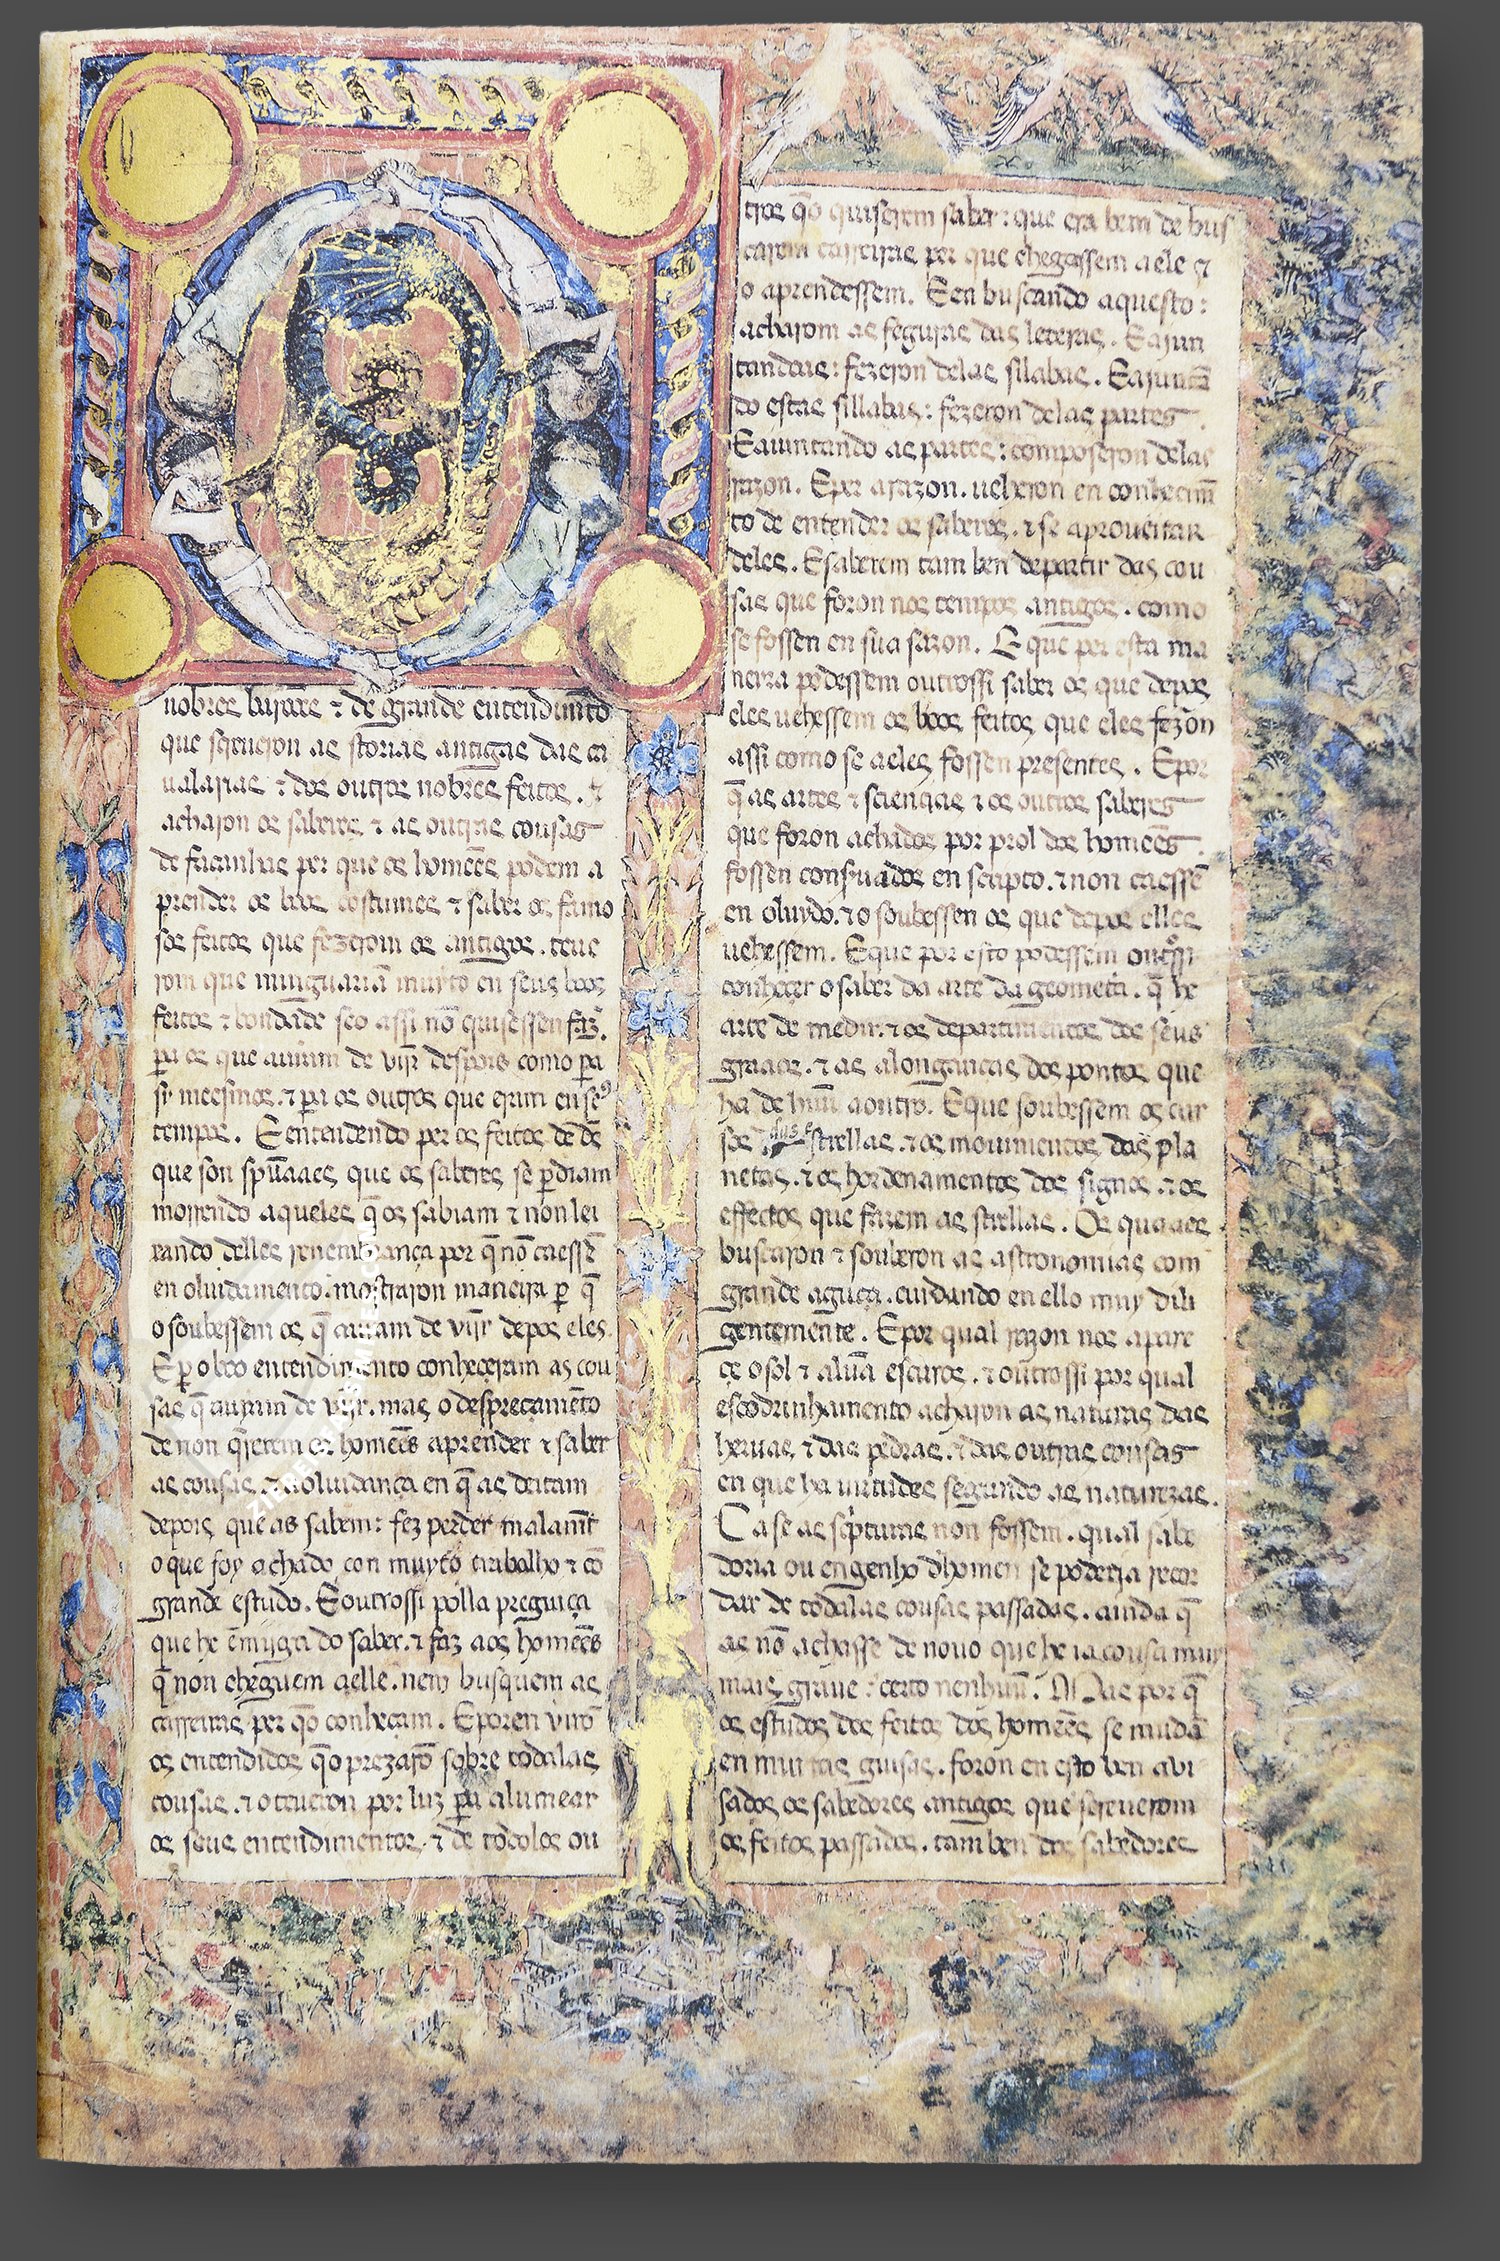 O
nobres barões ⁊ de grande entendimẽto
que screueron as storias antigas das ca
ualarias ⁊ dos outros nobres feitos. ⁊
acharon os saberes ⁊ as outras cousas
de façanhas per que os homẽes podem a
prender os boos costumes ⁊ saber os famo
sos feitos que fezerom os antigos. teue
rom que minguariã muyto en seus boos
feitos ⁊ bondade seo assi nõ quisessen faz̃
pa os que auiam de vijr despois como pa
si meesmos. ⁊ pa os outros que eram en se9
tempos. E entendendo per os feitos de ds̃
que son spũaaes, que os saberes se ꝑdiam
morrendo aqueles q̃ os sabiam ⁊ non lei
xando delles renembrança por q̃ nõ caessẽ
en oluidamento. mostraron maneira ꝑ q̃
o soubessem os q̃ auiam de vijr depos eles.
E ꝑ o boo entendimento conheçeram as cou
sas q̃ auiam de vijr. mas o despreçamẽto
de non q̃rerem os homẽes aprender ⁊ saber
as cousas. ⁊ a oluidança en q̃ as deitam
depois que as sabem: fez perder malamẽt
o que foy achado con muyto trabalho ⁊ cõ
grande estudo. E outrossi polla preguiça
que he ẽmijga do saber. ⁊ faz aos homẽes
q̃ non cheguem a elle. nem busquem as
carreiras per q̃o conheçam. E poren virõ
os entendidos q̃o prezarõ sobre todalas
cousas. ⁊ o teueron por luz pa alumear
os seus entendimentos. ⁊ de todolos ou
tros q̃o quiserem saber: que era bem de bus
carem carreiras per que chegassem a ele ⁊
o aprendessem. E en buscando aquesto:
acharom as feguras das leteras. E ajun
tandoas: fezeron delas silabas. E ajuntã
do estas sillabas: fezeron delas partes
E aiuntando as partes: composeron delas
razon. E per a razon. ueheron en conhecimẽ
to de entender os saberes. ⁊ se aproueitar
deles. E saberem tam ben departir das cou
sas que foron nos tempos antigos. como
se fossen en sua sazon. E que per esta ma
neira podessem outrossi saber os que depos
eles uehessem os boos feitos que eles fezerõn
assi como se a eles fossen presentes. E por
q̃ as artes ⁊ sciencias ⁊ os outros saberes
que foron achados por prol dos homẽes.
fossen consruados en scripto. ⁊ non caessẽ
en oluydo. ⁊ o soubessen os que depos elles
uehessem. E que por esto podessem outrossi
conheçer o saber da arte da geometria. q̃ he
arte de medir. ⁊ os departimentos dos seus
graaos. ⁊ as alonganças dos pontos que
ha de huũ a outro. E que soubessem os cur
sos das estrellas. ⁊ os mouimentos das pla
netas. ⁊ os hordenamentos dos signos. ⁊ os
effectos que fazem as strellas. Os quaaes
buscaron ⁊ souberon as astronomias com
grande aguça. cuidando en ello muy dili
gentemente. E por qual razon nos apare
çe o sol ⁊ a luã escuros. ⁊ outrossi por qual
escodrinhamento acharon as naturas das
heruas. ⁊ das pedras. ⁊ das outras cousas
en que ha uirtudes segundo as naturezas.
Ca se as scpturas non fossem. qual sabe
doria ou engenho dhomen se poderia recor
dar de todalas cousas passadas. ainda q̃
as nõ achasse de nouo que he ia cousa muy
mais graue: certo nenhuũ. Mas por q̃
os estudos dos feitos dos homẽes se mudã
en muitas guisas. foron en esto ben aui
sados os sabedores antigos que screuerom
os feitos passados. tam ben dos sabedores